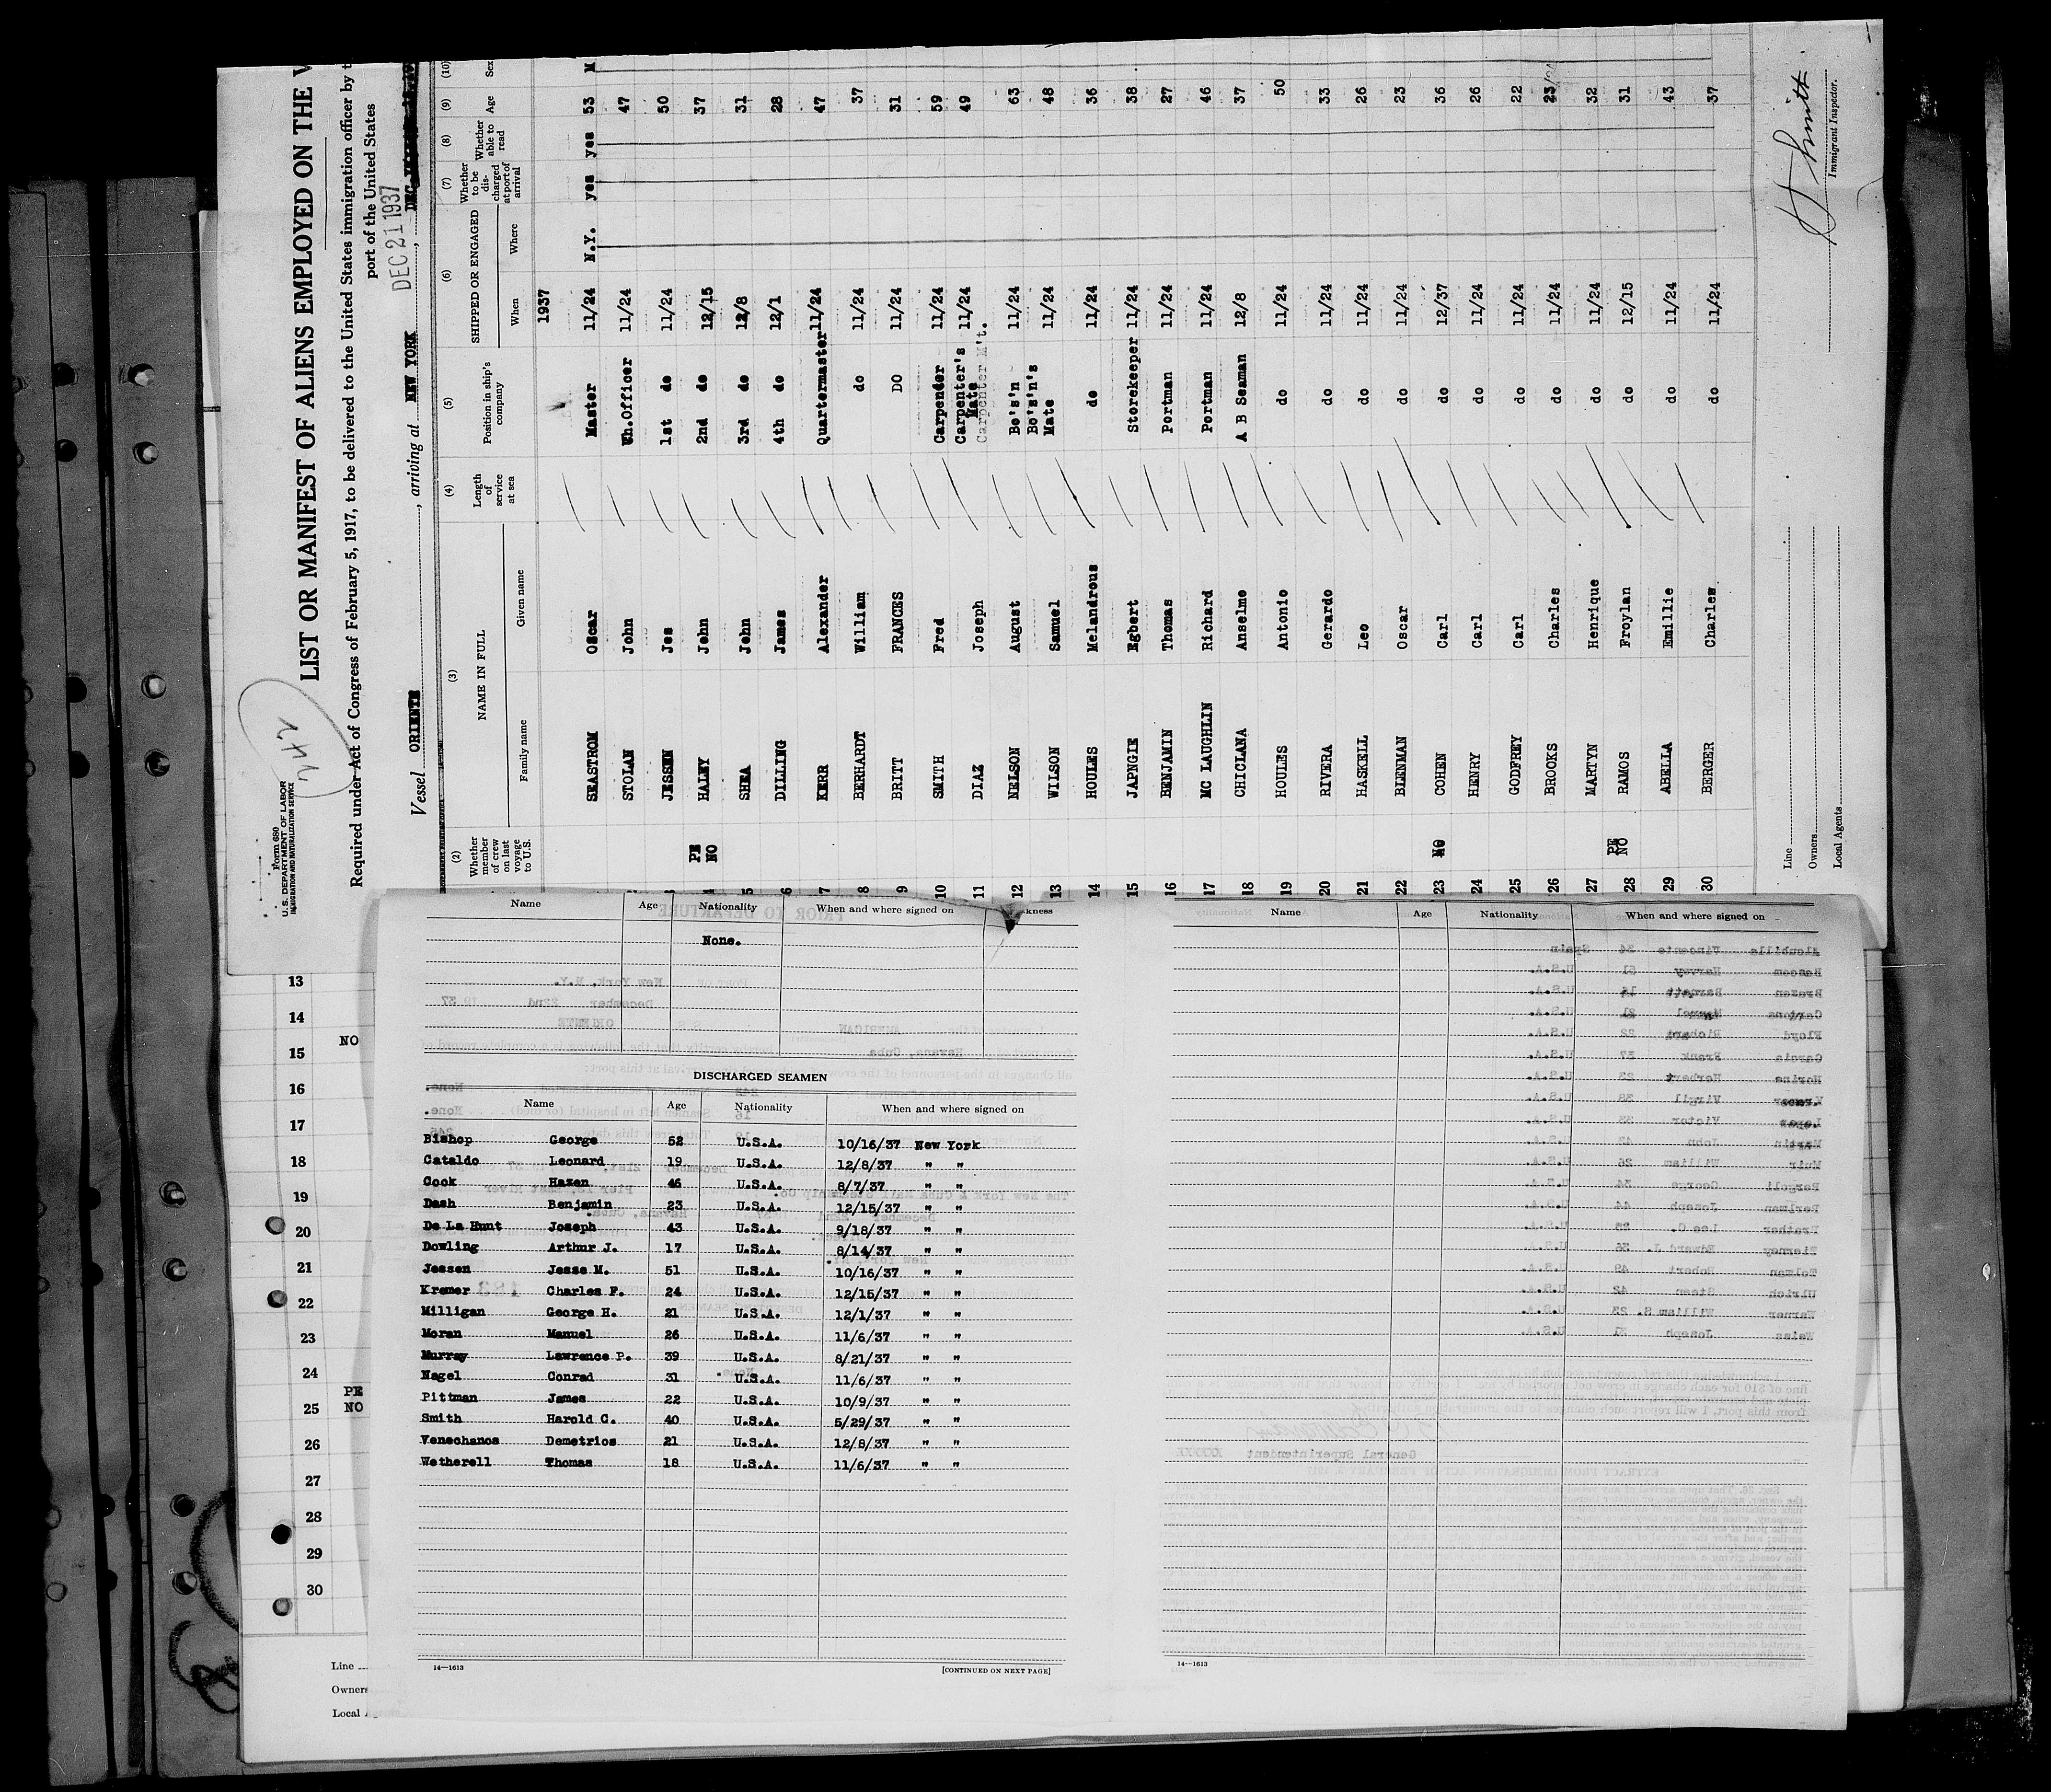 Form 680
U. S. DEPARTMENT OF LABOR
IMMIGRATION AND NATURALIZATION SERVICE
242
LIST OR MANIFEST OF ALIENS EMPLOYED ON THE
Required under Act of Congress of February 5, 1917, to be delivered to the United States immigration officer by
port of the United States
Vessel ORIENTE, arriving at NEW YORK, DEC 21 1937
(2) (3) (4) (5) (6) (7) (8) (9) (10)
Whether member of crew on last voyage to U.S. NAME IN FULL Length of service at sea Position in ship's company SHIPPED OR ENGAGED Whether to be discharged at port of arrival Whether able to read Age Sex
Family name Given name When Where
1937
SEASTROM Oscar Master 11/24 N.Y. yes yes 53 M
STOLAN John Ch.Officer 11/24 47
3 JESSEN Jes 1st do 11/24 50
4 PE NO HALEY John 2nd do 12/15 37
5 SHEA John 3rd do 12/8 31
6 DILLING James 4th do 12/1 28
7 KERR Alexander Quartermaster 11/24 47
8 BERHARDT William do 11/24 37
9 BRITT FRANCES DO 11/24 31
10 SMITH Fred Carpender 11/24 59
11 DIAZ Joseph Carpenter's Mate 11/24 49
Carpenter M't.
12 NELSON August Bo's'n 11/24 63
13 WILSON Samuel Bo's'n's Mate 11/24 48
14 HOULES Melandrous do 11/24 36
15 JAPNGIE Egbert Storekeeper 11/24 38
16 BENJAMIN Thomas Portman 11/24 27
17 MC LAUGHLIN Richard Portman 11/24 46
18 CHICLANA Anselmo A B Seaman 12/8 37
19 HOULES Antonio do 11/24 50
20 RIVERA Gerardo do 11/24 33
21 HASKELL Leo do 11/24 26
22 BLENMAN Oscar do 11/24 23
23 NO COHEN Carl do 12/37 36
24 HENRY Carl do 11/24 26
25 GODFREY Carl do 11/24 22
26 BROOKS Charles do 11/24 23
27 MARTYN Henrique do 11/24 32
28 PE NO RAMOS Froylan do 12/15 31
29 ABELLA Emillie do 11/24 43
30 BERGER Charles do 11/24 37
Line
Owners
Local Agents
Immigrant Inspector.
13
14
NO
15
16
17
18
19
20
21
22
23
24
PE
25 NO
26
27
28
29
30
Line
Owners
Local
Name Age Nationality When and where signed on
None.
DISCHARGED SEAMEN
Name Age Nationality When and where signed on
Bishop George 52 U.S.A. 10/16/37 New York
Cataldo Leonard 19 U.S.A. 12/8/37 " "
Cook Hazen 46 U.S.A. 8/7/37 " "
Dash Benjamin 23 U.S.A. 12/15/37 " "
De La Hunt Joseph 43 U.S.A. 9/18/37 " "
Dowling Arthur J. 17 U.S.A. 8/14/37 " "
Jessen Jesse M. 51 U.S.A. 10/16/37 " "
Kremer Charles F. 24 U.S.A. 12/15/37 " "
Milligan George H. 21 U.S.A. 12/1/37 " "
Moran Manuel 26 U.S.A. 11/6/37 " "
Murray Lawrence P. 39 U.S.A. 8/21/37 " "
Nagel Conrad 31 U.S.A. 11/6/37 " "
Pittman James 22 U.S.A. 10/9/37 " "
Smith Harold C. 40 U.S.A. 5/29/37 " "
Venechanos Demetrios 21 U.S.A. 12/8/37 " "
Wetherell Thomas 18 U.S.A. 11/6/37 " "
14—1613
[CONTINUED ON NEXT PAGE]
Name Age Nationality When and where signed on
14—1613